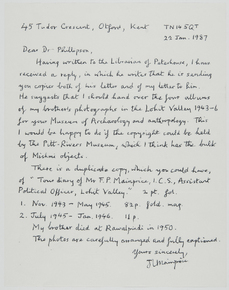 45 Tudor Crescent, Otford, Kent TN14 5QT
22 Jan. 1987
Dear Dr. Phillipson,
Having written to the Librarian of Peterhouse, I have
received a reply, in which he writes that he is sending
you copies both of his letter and of my letter to him.
He suggests that I should hand over the four albums
of my brother's photographs in the Lohit Valley 1943-6
for your Museum of Archaeology and anthropology. This
I would be happy to do if the copyright could be held
by the Pitt-Rivers Museum, which I think has the bulk
of Mishmi objects.
There is a duplicate copy, which you could have,
of "Tour diary of Mr. F.P. Mainprice, I.C.S., Assistant
Political Officer, Lohit Valley." 2 pt. fol.
1. Nov 1943 - May 1945. 82 p. fold. map.
2. July 1945 - Jan. 1946. 11 p.
My brother died at Rawalpindi in 1950.
The photos are carefully arranged and fully captioned.
Yours sincerely,
Mainprice